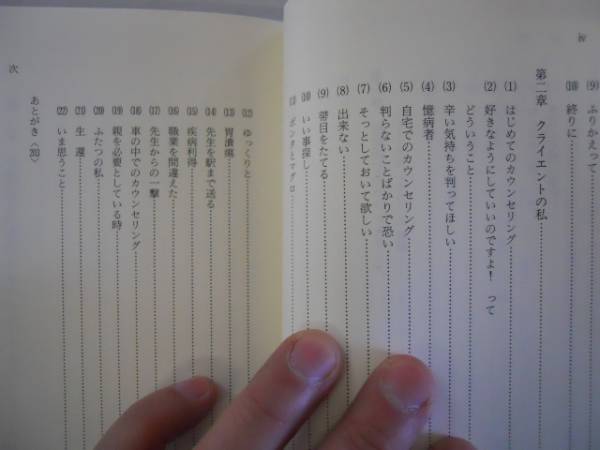 iv
(9) ふりかえって
(10) 終りに
第二章 クライエントの私
(1) はじめてのカウンセリング
(2) 好きなようにしていいのですよ! って
どういうこと
(3) 辛い気持ちを判ってほしい
(4) 憶病者
(5) 自宅でのカウンセリング
(6) 判らないことばかりで恐い
(7) そっとしておいて欲しい
(8) 出来ない
(9) 番目をたてる
(10) いい事探し
(11) ポンタとマグロ
(12) ゆっくりと
(13) 胃潰瘍
(14) 先生を駅まで送る
(15) 疾病利得
(16) 職業を間違えた
(17) 先生からの一撃
(18) 車の中でのカウンセリング
(19) 親を必要としている時
(20) ふたつの私
(21) 生還
(22) いま思うこと
あとがき
次